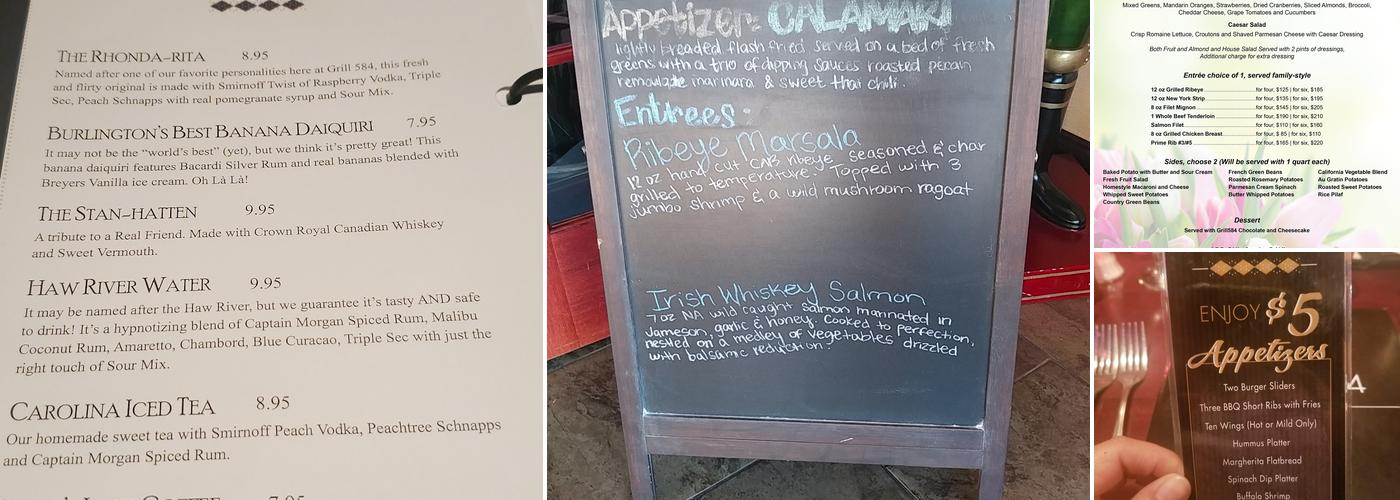 THE RHONDA-RITA 8.95
Named after one of our favorite personalities here at Grill 584, this fresh
and flirty original is made with Smirnoff Twist of Raspberry Vodka, Triple
Sec, Peach Schnapps with real pomegranate syrup and Sour Mix.
BURLINGTON'S BEST BANANA DAIQUIRI 7.95
It may not be the "world's best" (yet), but we think it's pretty great! This
banana daiquiri features Bacardi Silver Rum and real bananas blended with
Breyers Vanilla ice cream. Oh Là Là!
THE STAN-HATTEN 9.95
A tribute to a Real Friend. Made with Crown Royal Canadian Whiskey
and Sweet Vermouth.
HAW RIVER WATER 9.95
It may be named after the Haw River, but we guarantee it's tasty AND safe
to drink! It's a hypnotizing blend of Captain Morgan Spiced Rum, Malibu
Coconut Rum, Amaretto, Chambord, Blue Curacao, Triple Sec with just the
right touch of Sour Mix.
CAROLINA ICED TEA 8.95
Our homemade sweet tea with Smirnoff Peach Vodka, Peachtree Schnapps
and Captain Morgan Spiced Rum.
7.95
Appetizer: CALAMARI
lightly breaded flash fried served on a bed of fresh
greens with a trio of dipping sauces roasted pecan
remoulade marinara & sweet thai chili.
Entrees:
Ribeye Marsala
12 oz hand cut CAB ribeye seasoned & char
grilled to temperature. Topped with 3
jumbo shrimp & a wild mushroom ragoat
Irish Whiskey Salmon
7 oz NA wild caught salmon marinated in
Jameson, garlic & honey. Cooked to perfection,
nestled on a medley of vegetables drizzled
with balsamic reduction.
Mixed Greens, Mandarin Oranges, Strawberries, Dried Cranberries, Sliced Almonds, Broccoli,
Cheddar Cheese, Grape Tomatoes and Cucumbers
Caesar Salad
Crisp Romaine Lettuce, Croutons and Shaved Parmesan Cheese with Caesar Dressing
Both Fruit and Almond and House Salad Served with 2 pints of dressings,
Additional charge for extra dressing
Entrée choice of 1, served family-style
12 oz Grilled Ribeye for four, $125 | for six, $185
12 oz New York Strip for four, $135 | for six, $195
8 oz Filet Mignon for four, $145 | for six, $205
1 Whole Beef Tenderloin for four, $190 | for six, $210
Salmon Filet for four, $110 | for six, $160
8 oz Grilled Chicken Breast for four, $ 85 | for six, $110
Prime Rib #3/#5 for four, $165 | for six, $220
Sides, choose 2 (Will be served with 1 quart each)
Baked Potato with Butter and Sour Cream French Green Beans California Vegetable Blend
Fresh Fruit Salad Roasted Rosemary Potatoes Au Gratin Potatoes
Homestyle Macaroni and Cheese Parmesan Cream Spinach Roasted Sweet Potatoes
Whipped Sweet Potatoes Butter Whipped Potatoes Rice Pilaf
Country Green Beans
Dessert
Served with Grill584 Chocolate and Cheesecake
ENJOY $5
Appetizers
Two Burger Sliders
Three BBQ Short Ribs with Fries
Ten Wings (Hot or Mild Only)
Hummus Platter
Margherita Flatbread
Spinach Dip Platter
Buffalo Shrimp
4